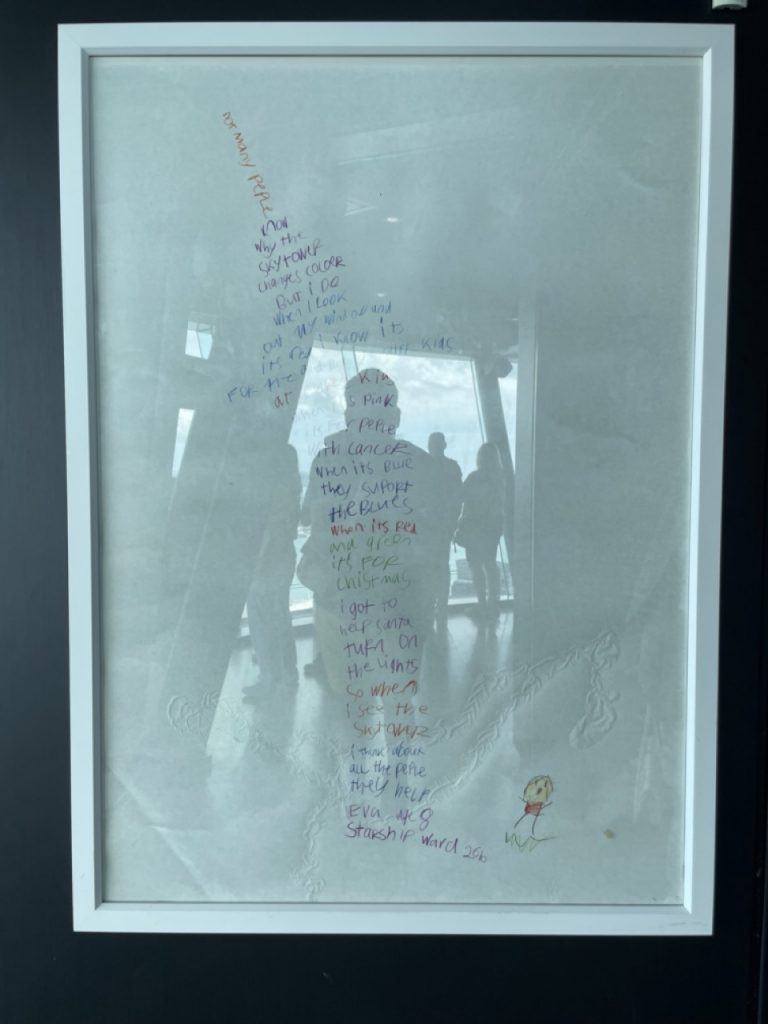 not many peple
know
why the
skytower
changes coloer
But i Do
when i look
out my window and
its red i know its
FOR the kids
at
when its pink
its For peple
with cancer
when its Blue
they suport
the Blues
when its Red
and green
its FOR
christmas
i got to
help santa
turn on
the lights
so when
i see the
skytower
i think about
all the peple
they help
Eva age 8
Starship ward 25b